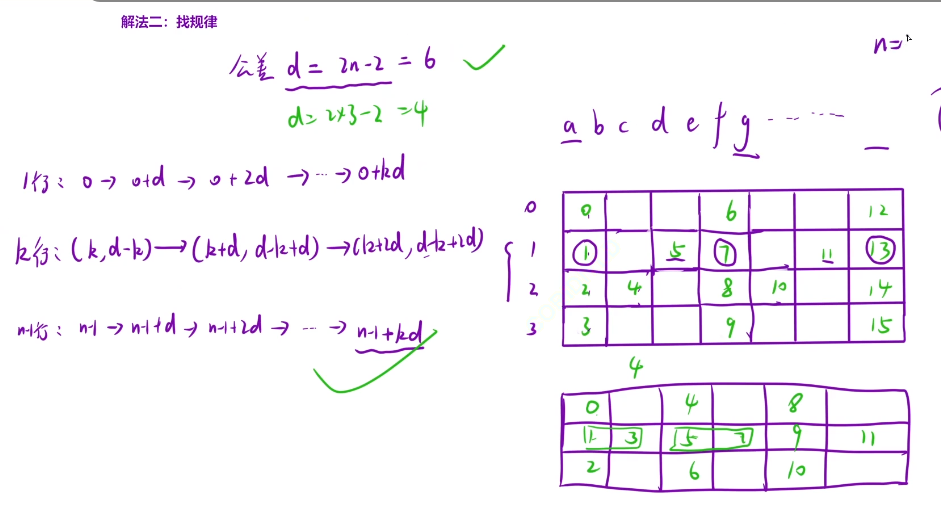 解法二：找规律
n=
公差 d = 2n-2 = 6
d = 2×3-2 = 4
a b c d e f g ...... 
1行: 0 → 0+d → 0+2d → ... → 0+kd
k行: (k, d-k) → (k+d, d-k+d) → (k+2d, d-k+2d)
n-1行: n-1 → n-1+d → n-1+2d → ... → n-1+kd
0 0 6 12
1 1 5 7 11 13
2 2 4 8 10 14
3 3 9 15
4
0 4 8
1 3 5 7 9 11
2 6 10